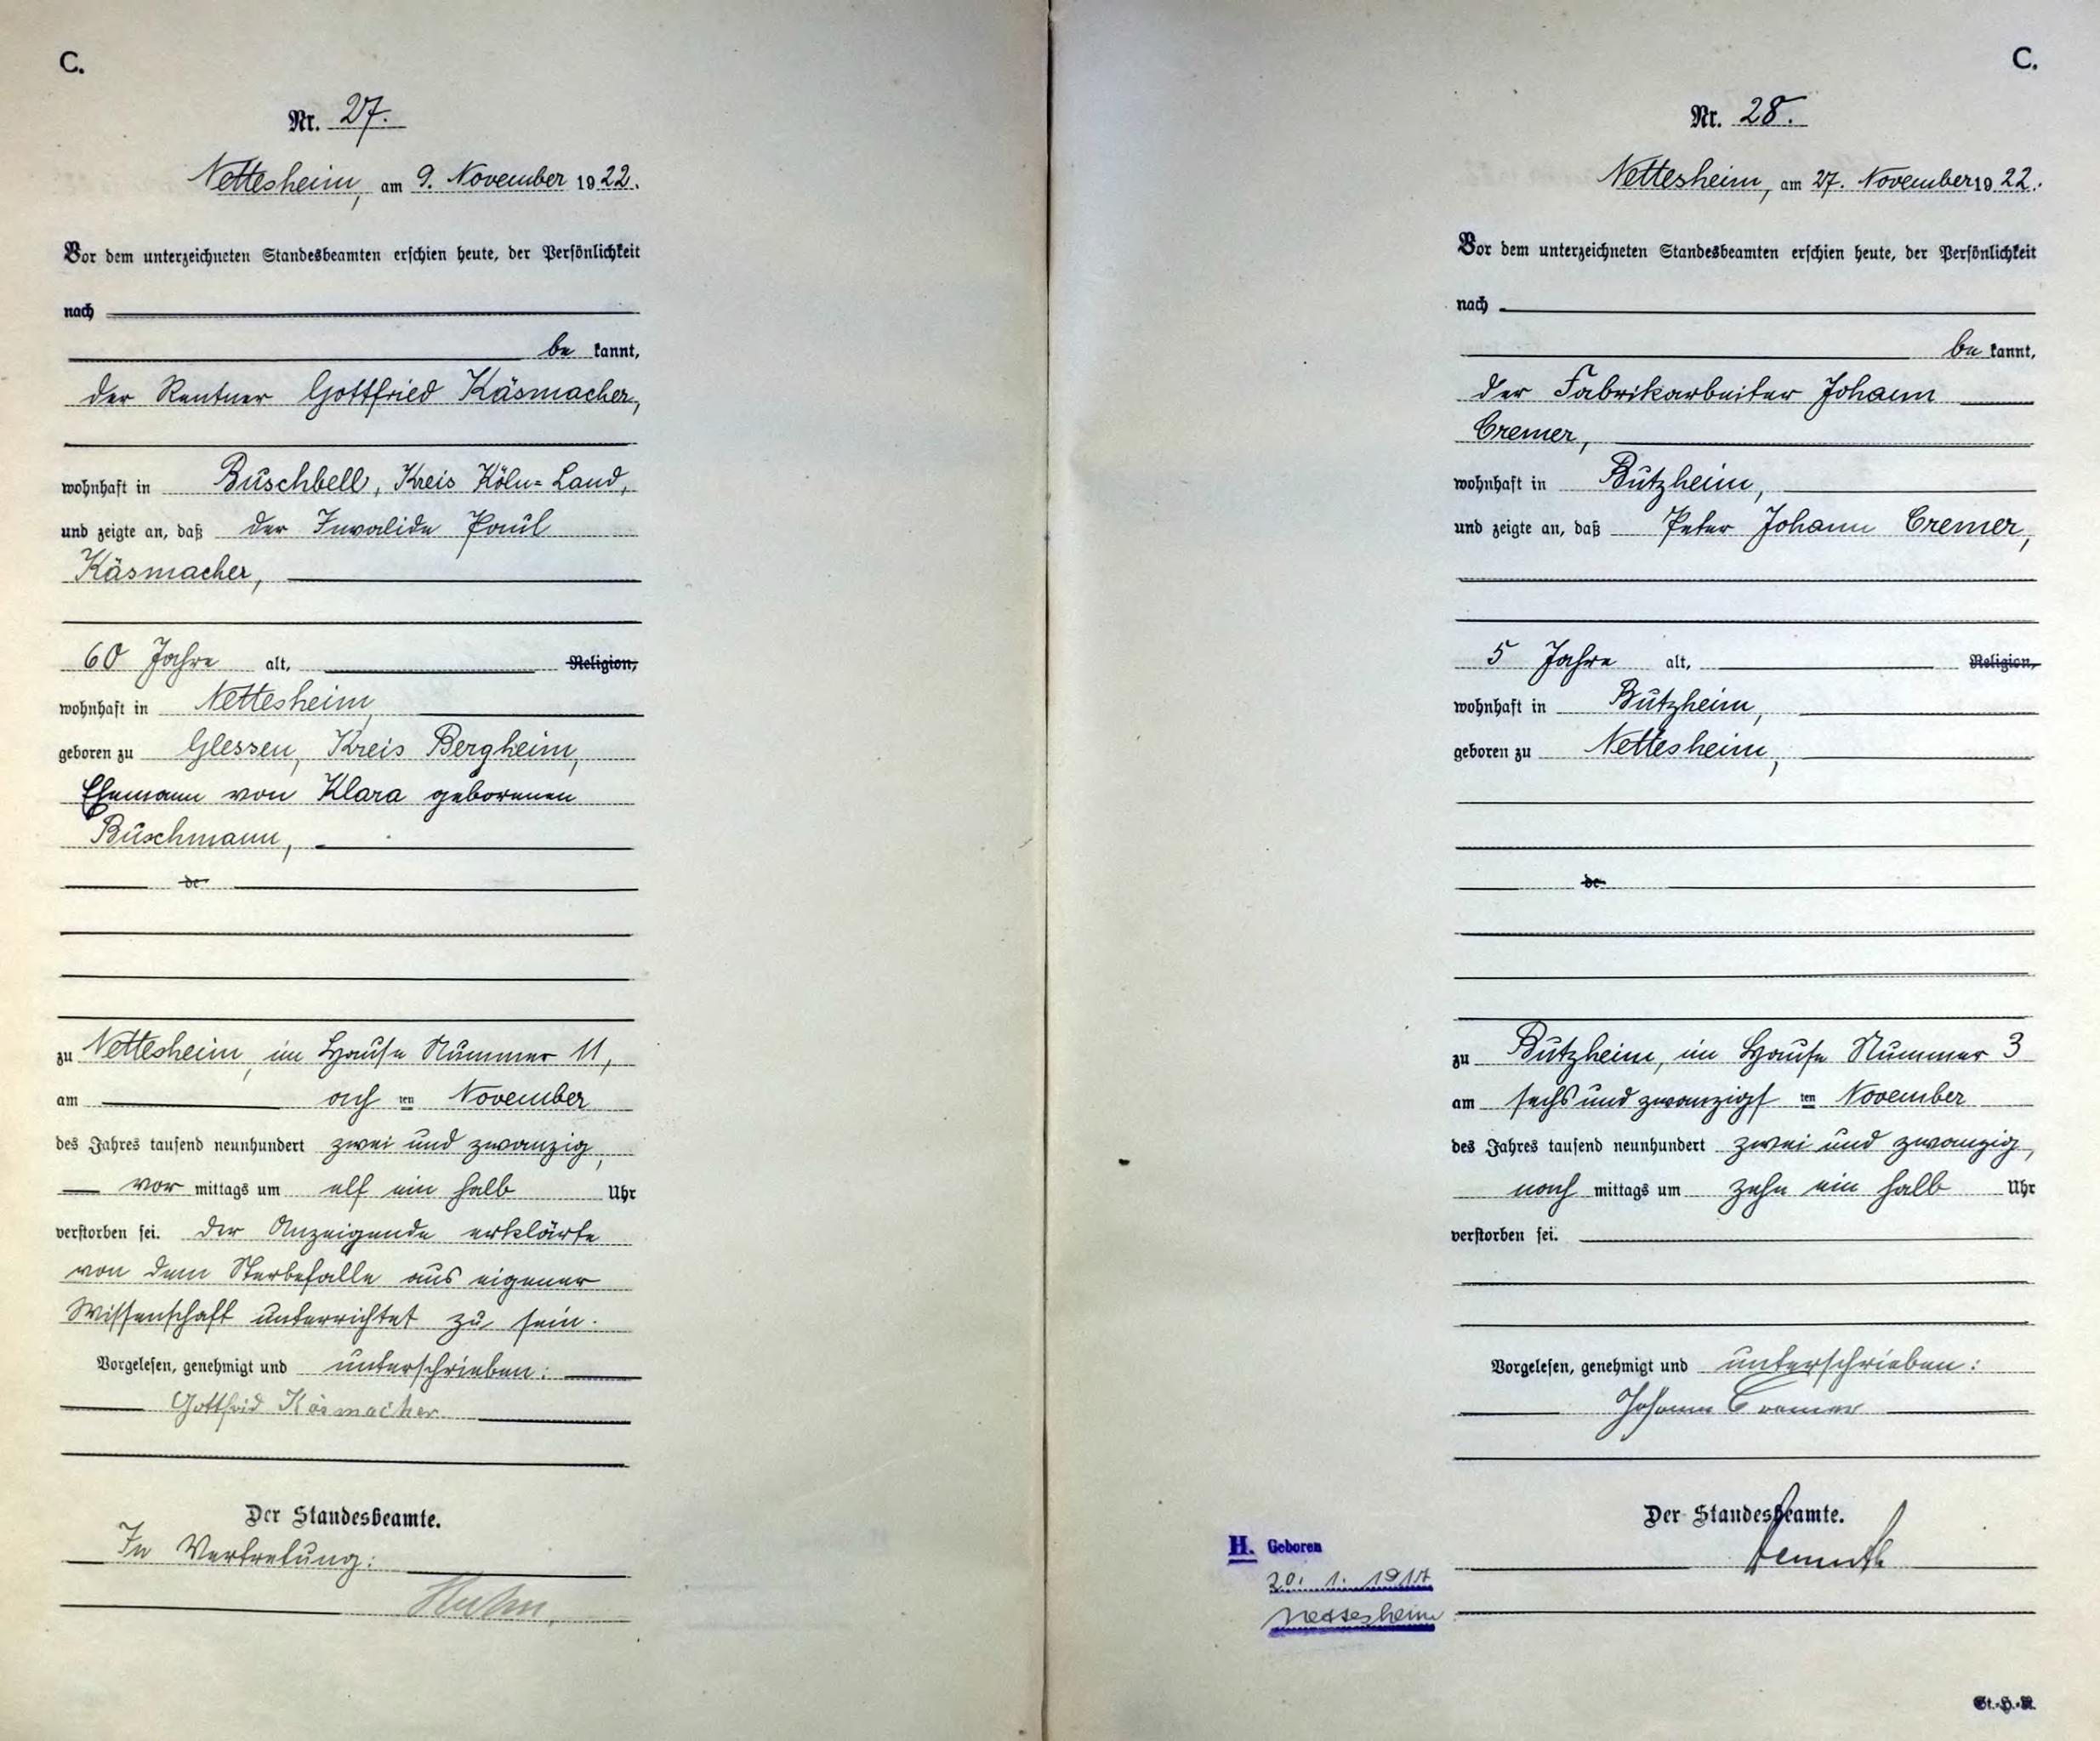 C.
Nr. 27.
Nettesheim, am 9. November 1922.
Vor dem unterzeichneten Standesbeamten erschien heute, der Persönlichkeit
nach
be kannt,
der Rentner Gottfried Käsmacher,
wohnhaft in Buschbell, Kreis Köln-Land,
und zeigte an, daß der Invalide Paul
Käsmacher,
60 Jahre alt, Religion,
wohnhaft in Nettesheim
geboren zu Glessen, Kreis Bergheim,
Ehemann von Klara geborenen
Buschmann,
de
zu Nettesheim, im Hause Nummer 11,
am ach ten November
des Jahres tausend neunhundert zwei und zwanzig,
vor mittags um elf ein halb Uhr
verstorben sei. Der Anzeigende erklärte
von dem Sterbefalle aus eigener
Wissenschaft unterrichtet zu sein.
Vorgelesen, genehmigt und unterschrieben:
Gottfrid Käsmacher
Der Standesbeamte.
In Vertretung:
C.
Nr. 28.
Nettesheim, am 27. November 1922.
Vor dem unterzeichneten Standesbeamten erschien heute, der Persönlichkeit
nach
be kannt,
der Fabrikarbeiter Johann
Cremer,
wohnhaft in Butzheim,
und zeigte an, daß Peter Johann Cremer,
5 Jahre alt, Religion,
wohnhaft in Butzheim,
geboren zu Nettesheim,
de
zu Butzheim, im Hause Nummer 3
am sechs und zwanzigs ten November
des Jahres tausend neunhundert zwei und zwanzig,
nach mittags um zehn ein halb Uhr
verstorben sei.
Vorgelesen, genehmigt und unterschrieben:
Johann Cremer
Der Standesbeamte.
H. Geboren
20. 1. 1917
Nettesheim
St.-H.-R.